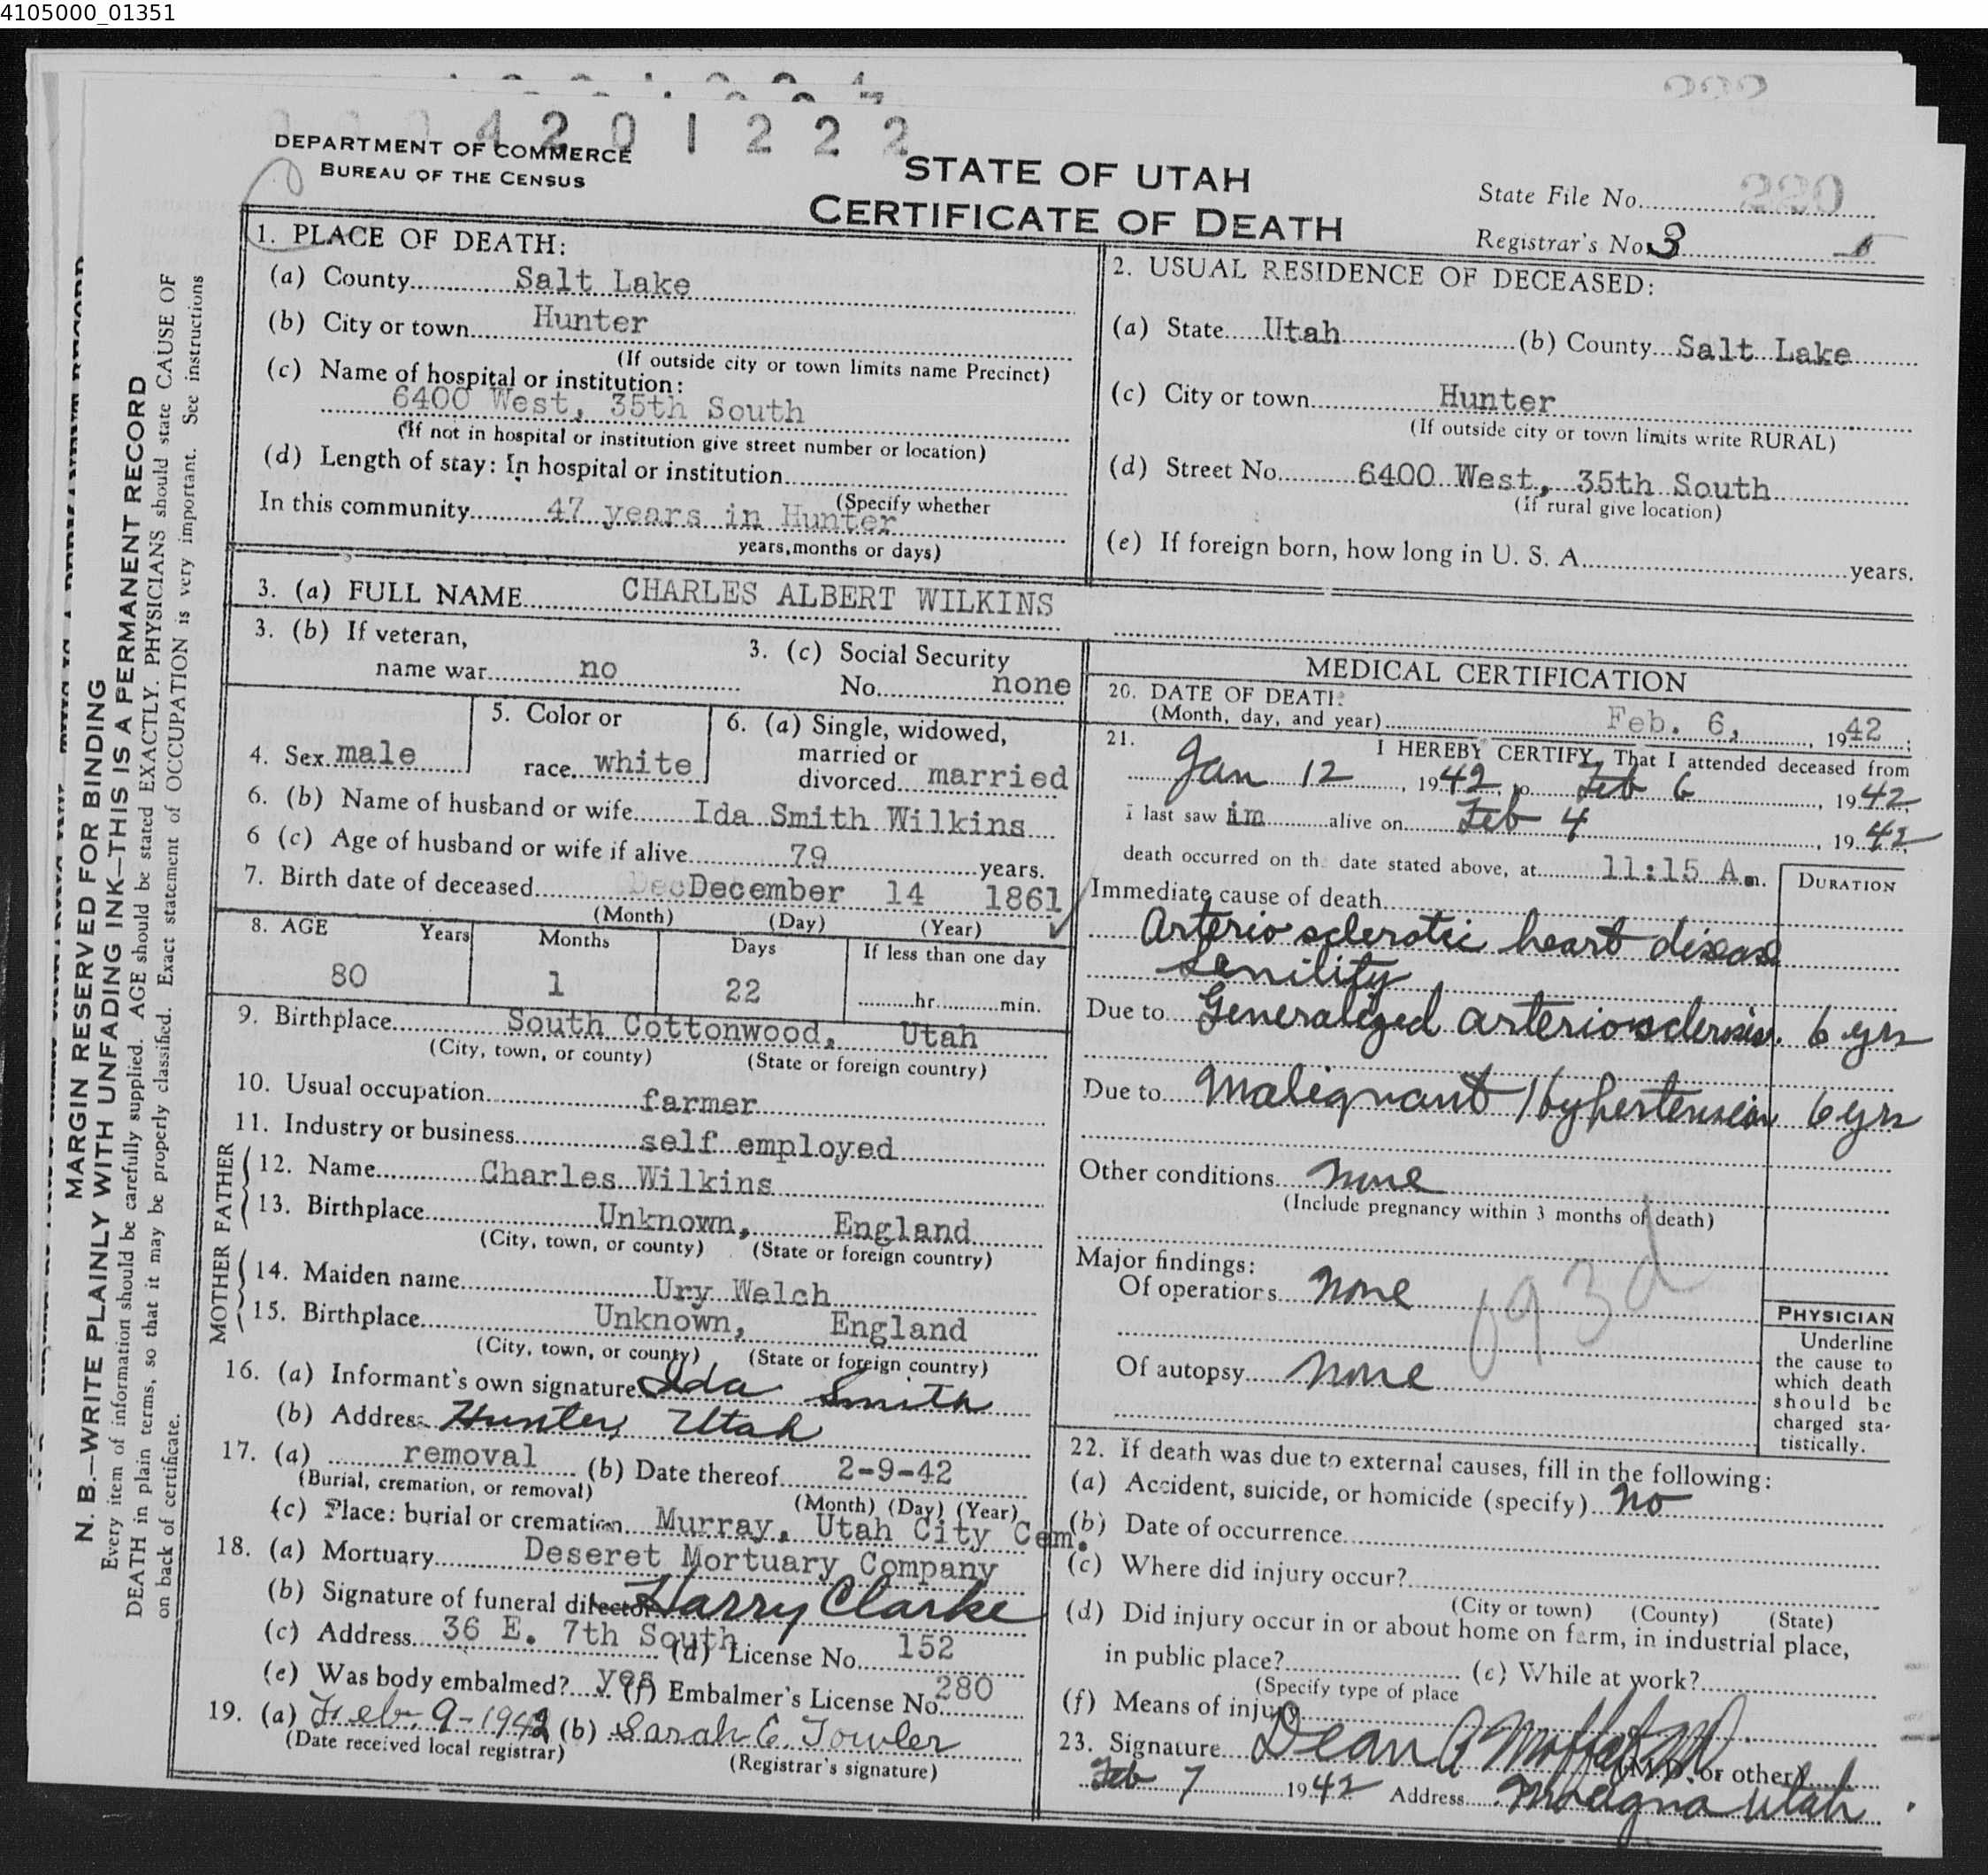 4105000_01351
4 2 0 1 2 2 2
DEPARTMENT OF COMMERCE
BUREAU OF THE CENSUS
STATE OF UTAH
CERTIFICATE OF DEATH
State File No. 220
Registrar's No. 3
MARGIN RESERVED FOR BINDING
N. B.—WRITE PLAINLY WITH UNFADING INK—THIS IS A PERMANENT RECORD
Every item of information should be carefully supplied. AGE should be stated EXACTLY. PHYSICIANS should state CAUSE OF
DEATH in plain terms, so that it may be properly classified. Exact statement of OCCUPATION is very important. See instructions
on back of certificate.
1. PLACE OF DEATH:
(a) County Salt Lake
(b) City or town Hunter
(If outside city or town limits name Precinct)
(c) Name of hospital or institution:
6400 West, 35th South
(If not in hospital or institution give street number or location)
(d) Length of stay: In hospital or institution
(Specify whether
In this community 47 years in Hunter
years, months or days)
2. USUAL RESIDENCE OF DECEASED:
(a) State Utah (b) County Salt Lake
(c) City or town Hunter
(If outside city or town limits write RURAL)
(d) Street No. 6400 West, 35th South
(If rural give location)
(e) If foreign born, how long in U. S. A. years.
3. (a) FULL NAME CHARLES ALBERT WILKINS
3. (b) If veteran,
name war no
3. (c) Social Security
No. none
4. Sex male
5. Color or
race white
6. (a) Single, widowed,
married or
divorced married
6. (b) Name of husband or wife Ida Smith Wilkins
6 (c) Age of husband or wife if alive 79 years.
7. Birth date of deceased Dec December 14 1861
(Month) (Day) (Year)
8. AGE Years Months Days If less than one day
80 1 22 hr. min.
9. Birthplace South Cottonwood, Utah
(City, town, or county) (State or foreign country)
10. Usual occupation farmer
11. Industry or business self employed
FATHER
12. Name Charles Wilkins
13. Birthplace Unknown, England
(City, town, or county) (State or foreign country)
MOTHER
14. Maiden name Ury Welch
15. Birthplace Unknown, England
(City, town, or county) (State or foreign country)
16. (a) Informant's own signature Ida Smith
(b) Address Hunter, Utah
17. (a) removal (b) Date thereof 2-9-42
(Burial, cremation, or removal) (Month) (Day) (Year)
(c) Place: burial or cremation Murray, Utah City Cem.
18. (a) Mortuary Deseret Mortuary Company
(b) Signature of funeral director Harry Clarke
(c) Address 36 E. 7th South (d) License No. 152
(e) Was body embalmed? yes (f) Embalmer's License No. 280
19. (a) Feb. 9-1942 (b) Sarah E. Towler
(Date received local registrar) (Registrar's signature)
MEDICAL CERTIFICATION
20. DATE OF DEATH:
(Month, day, and year) Feb. 6, 1942;
21. I HEREBY CERTIFY, That I attended deceased from
Jan 12, 1942, to Feb 6, 1942
I last saw im alive on Feb 4, 1942
death occurred on the date stated above, at 11:15 A.m.
DURATION
Immediate cause of death
Arterio sclerotic heart disease
Senility
Due to Generalized arteriosclerosis. 6 yrs
Due to Malignant Hypertension 6 yrs
Other conditions none
(Include pregnancy within 3 months of death)
Major findings:
Of operations none
093d
Of autopsy none
PHYSICIAN
Underline
the cause to
which death
should be
charged sta-
tistically.
22. If death was due to external causes, fill in the following:
(a) Accident, suicide, or homicide (specify) no
(b) Date of occurrence
(c) Where did injury occur?
(City or town) (County) (State)
(d) Did injury occur in or about home on farm, in industrial place,
in public place? (e) While at work?
(Specify type of place
(f) Means of injury
23. Signature Dean A Moffat MD
(M.D. or other)
Feb 7 1942 Address Magna Utah